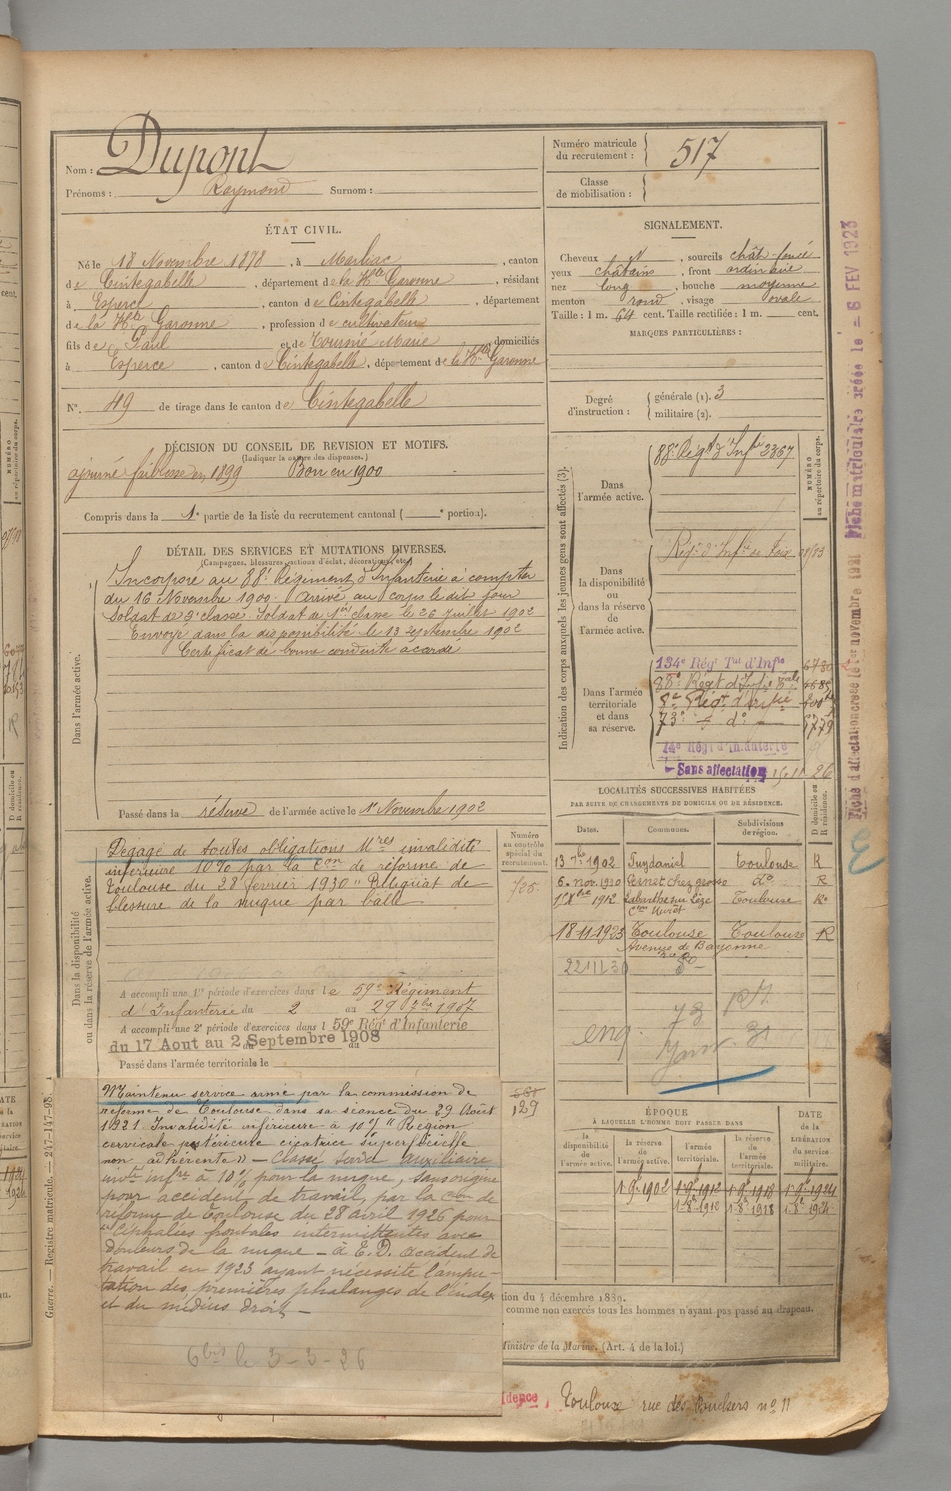 Nom : Dupont
Prénoms : Raymond Surnom :
Numéro matricule du recrutement : 517
Classe de mobilisation :
ÉTAT CIVIL.
Né le 18 Novembre 1878, à Marliac, canton
de Cintegabelle, département de la Hte Garonne, résidant
à Esperce, canton de Cintegabelle, département
de la Hte Garonne, profession de cultivateur
fils de Paul et de Tournié Marie domiciliés
à Esperce, canton de Cintegabelle, département de la Hte Garonne
N° 49 de tirage dans le canton de Cintegabelle
DÉCISION DU CONSEIL DE REVISION ET MOTIFS.
(Indiquer la nature des dispenses.)
ajourné faiblesse en 1899 Bon en 1900
Compris dans la 1e partie de la liste du recrutement cantonal ( e portion).
DÉTAIL DES SERVICES ET MUTATIONS DIVERSES.
(Campagnes, blessures, actions d'éclat, décorations, etc.)
Dans l'armée active.
Incorporé au 88e Régiment d'Infanterie à compter
du 16 Novembre 1900. Arrivé au corps le dit jour
Soldat de 2e classe. Soldat de 1ère classe le 26 Juillet 1902
Envoyé dans la disponibilité le 13 Septembre 1902
Certificat de bonne conduite accordé
Passé dans la réserve de l'armée active le 1er Novembre 1902
Dans la disponibilité
ou dans la réserve de l'armée active.
Dégagé de toutes obligations Mres invalidité
inférieure 10% par la Con de réforme de
Toulouse du 28 février 1930 "Reliquat de
blessure de la nuque par balle
A accompli une 1re période d'exercices dans le 59e Régiment
d'Infanterie du 2 au 29 7bre 1907
A accompli une 2e période d'exercices dans l 59e Régt d'Infanterie
du 17 Aout au 2 Septembre 1908
Passé dans l'armée territoriale le
Maintenu service armé par la commission de
réforme de Toulouse dans sa séance du 29 Août
1921. Invalidité inférieure à 10% "Region
cervicale postérieure cicatrice superficielle
non adhérente" – Classé serv. auxiliaire
invté infre à 10% pour la nuque, sans origine
pour accident de travail, par la Con de
réforme de Toulouse du 28 avril 1926 pour
Céphalées frontales intermittentes avec
douleurs de la nuque – à E.D. accident de
travail en 1923 ayant nécessité l'ampu-
tation des premières phalanges de l'index
et du médius droit –
3-3-26
Guerre. — Registre matricule. — 247-147-98.
Numéro au contrôle spécial du recrutement.
129
SIGNALEMENT.
Cheveux d, sourcils chât-foncé
yeux châtains, front ordinaire
nez long, bouche moyenne
menton rond, visage ovale
Taille : 1 m. 64 cent. Taille rectifiée : 1 m. cent.
MARQUES PARTICULIÈRES :
Degré d'instruction : générale (1). 3
militaire (2).
Indication des corps auxquels les jeunes gens sont affectés (3).
NUMÉRO au répertoire du corps.
Dans l'armée active.
88e Régt d'Infie 2367
Dans la disponibilité ou dans la réserve de l'armée active.
Régt d'Infie de Foix
Dans l'armée territoriale et dans sa réserve.
134e Régt Tal d'Infie
88e Régt d'Infie
8e Régt d'Artie
73e d°
14e Régt d'Infanterie
Sans affectation
LOCALITÉS SUCCESSIVES HABITÉES
PAR SUITE DE CHANGEMENTS DE DOMICILE OU DE RÉSIDENCE.
Dates. Communes. Subdivisions de région. D domicile ou R résidence.
13 7bre 1902 Puydaniel Toulouse R
6. nov. 1910 d° R
1912 Labarthe sur Lèze Toulouse R
18-11-1923 Toulouse Toulouse R
Avenue de Bayonne
22 11 30
73
ÉPOQUE
À LAQUELLE L'HOMME DOIT PASSER DANS
la disponibilité de l'armée active. la réserve de l'armée active. l'armée territoriale. la réserve de l'armée territoriale. DATE de la LIBÉRATION du service militaire.
1-9bre 1902 1-9bre 1912 1-9bre 1918 1-9bre 1924
tion du 4 décembre 1889.
comme non exercés tous les hommes n'ayant pas passé au drapeau.
Ministre de la Marine. (Art. 4 de la loi.)
dence, Toulouse rue des n° 11
Fiche d'affectation créée le 1er novembre 1921
Fiche matriculaire créée le – 6 FEV 1923